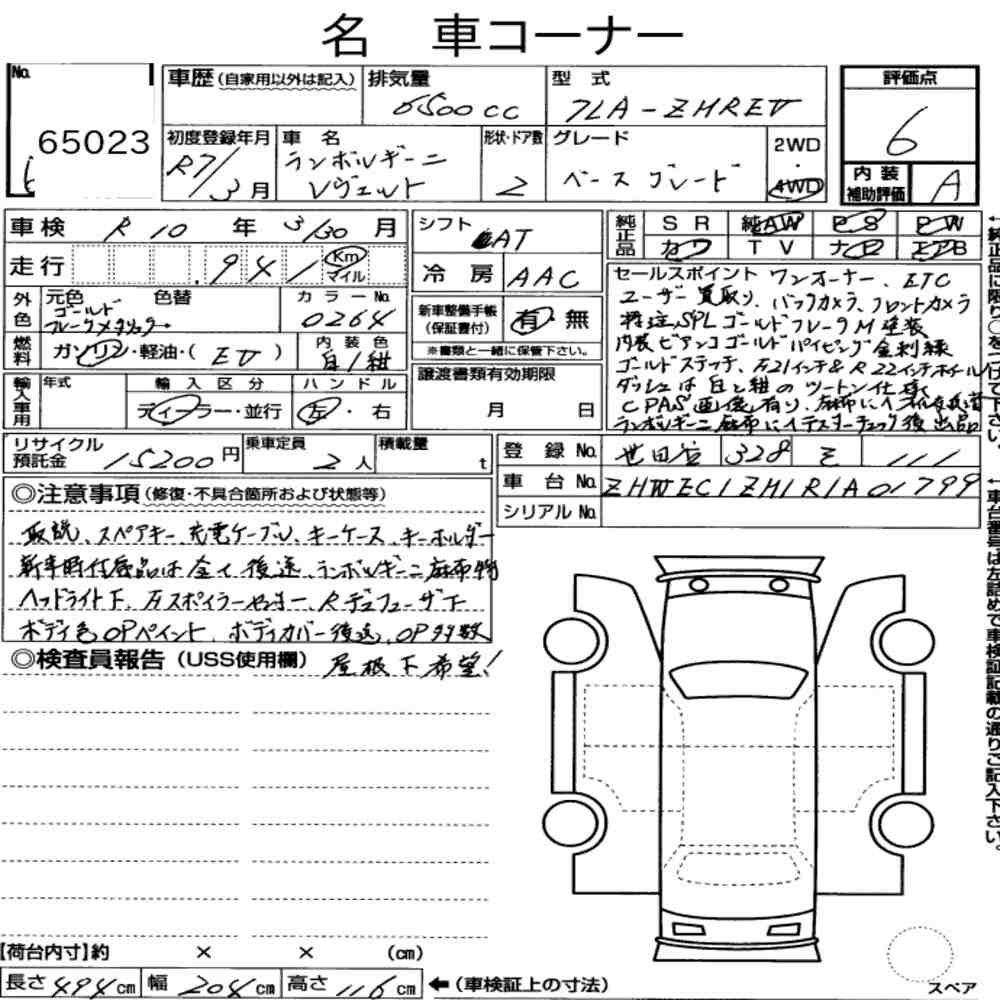 名 車コーナー
No.
65023
車歴(自家用以外は記入)
排気量
6500cc
型 式
7LA-ZHREV
評価点
6
初度登録年月
R7/3月
車 名
ランボルギーニ
レヴェルト
形状・ドア数
2
グレード
ベースグレード
2WD
・
4WD
内 装
補助評価
A
車検 R 10 年 3/30 月
走行 , 9 4 1 Km
マイル
シフト
AT
冷 房 AAC
純正品
S R 純AW P S P W
カワ T V ナビ エアB
外色
元色
ゴールド
フレークメタリック
色替
カラーNo.
0264
燃料
ガソリン・軽油・( EV )
内 装 色
白/紺
新車整備手帳
(保証書付)
有・無
※書類と一緒に保管下さい。
譲渡書類有効期限
月 日
セールスポイント ワンオーナー、ETC
ユーザー買取り、バックカメラ、フロントカメラ
特注SPLゴールドフレークM塗装
内装ビアンコゴールドパイピング金刺繍
ゴールドステッチ、F21インチ&R22インチホイール
ダッシュは白と紺のツートン仕様
輸入車用
年式
輸入区分
ディーラー・並行
ハンドル
左・右
リサイクル
預託金
15200円
乗車定員
2人
積載量
t
登 録 No. 世田谷 328 そ 111
車 台 No. ZHWEC1ZH1R1A01799
シリアル No.
◎注意事項(修復・不具合箇所および状態等)
取説、スペアキー、充電ケーブル、キーケース、キーホルダー
新車時付属品は全て後送、ランボルギーニ麻布物
ヘッドライト下、Fスポイラーセンサー、Rデュフューザー下
ボディ色OPペイント、ボディカバー後送、OP多数
◎検査員報告(USS使用欄) 屋根下希望!
【荷台内寸】約 × × (cm)
長さ494cm 幅 204cm 高さ 116cm ←(車検証上の寸法)
スペア
←純正品に限り○をつけて下さい。
←車台番号は左詰めで車検証記載の通りご記入下さい。